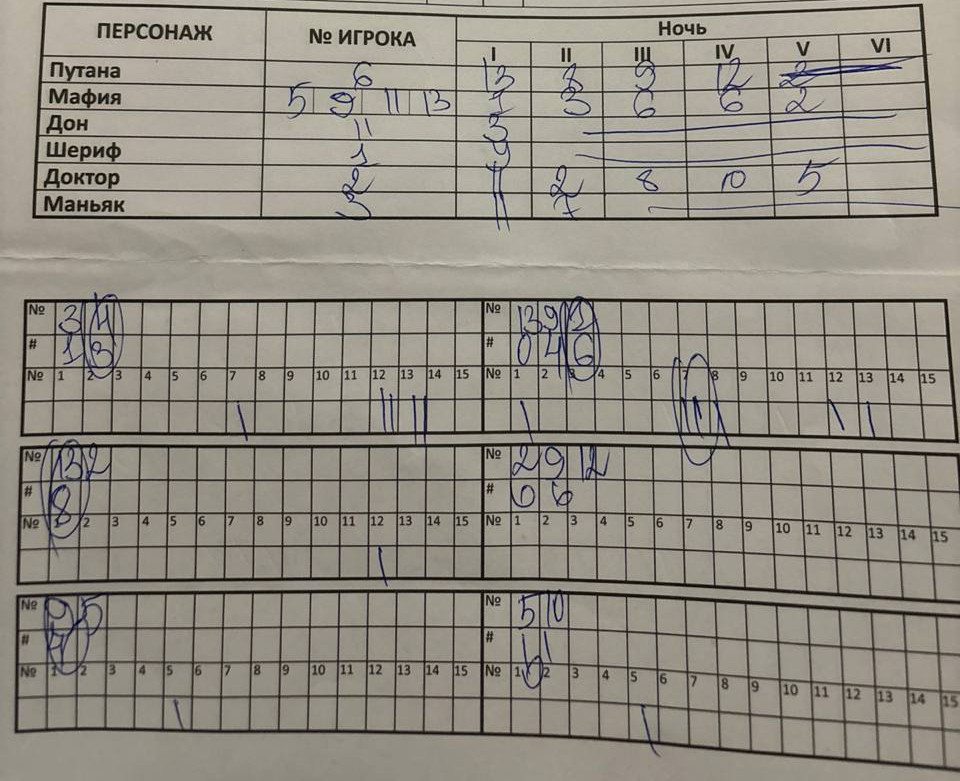 ПЕРСОНАЖ № ИГРОКА Ночь
I II III IV V VI
Путана 6 13 8 9 12 2
Мафия 5 9 11 13 1 3 6 6 2
Дон 11 3
Шериф 1 9
Доктор 2 2 8 10 5
Маньяк 3 11 7
№ 3 № 13 9 1
# 1 3 # 0 4 6
№ 1 2 3 4 5 6 7 8 9 10 11 12 13 14 15 № 1 2 3 4 5 6 7 8 9 10 11 12 13 14 15
№ 13 2 № 2 9 12
# 8 # 0 6
№ 1 2 3 4 5 6 7 8 9 10 11 12 13 14 15 № 1 2 3 4 5 6 7 8 9 10 11 12 13 14 15
№ 9 5 № 5 10
# #
№ 1 2 3 4 5 6 7 8 9 10 11 12 13 14 15 № 1 2 3 4 5 6 7 8 9 10 11 12 13 14 15